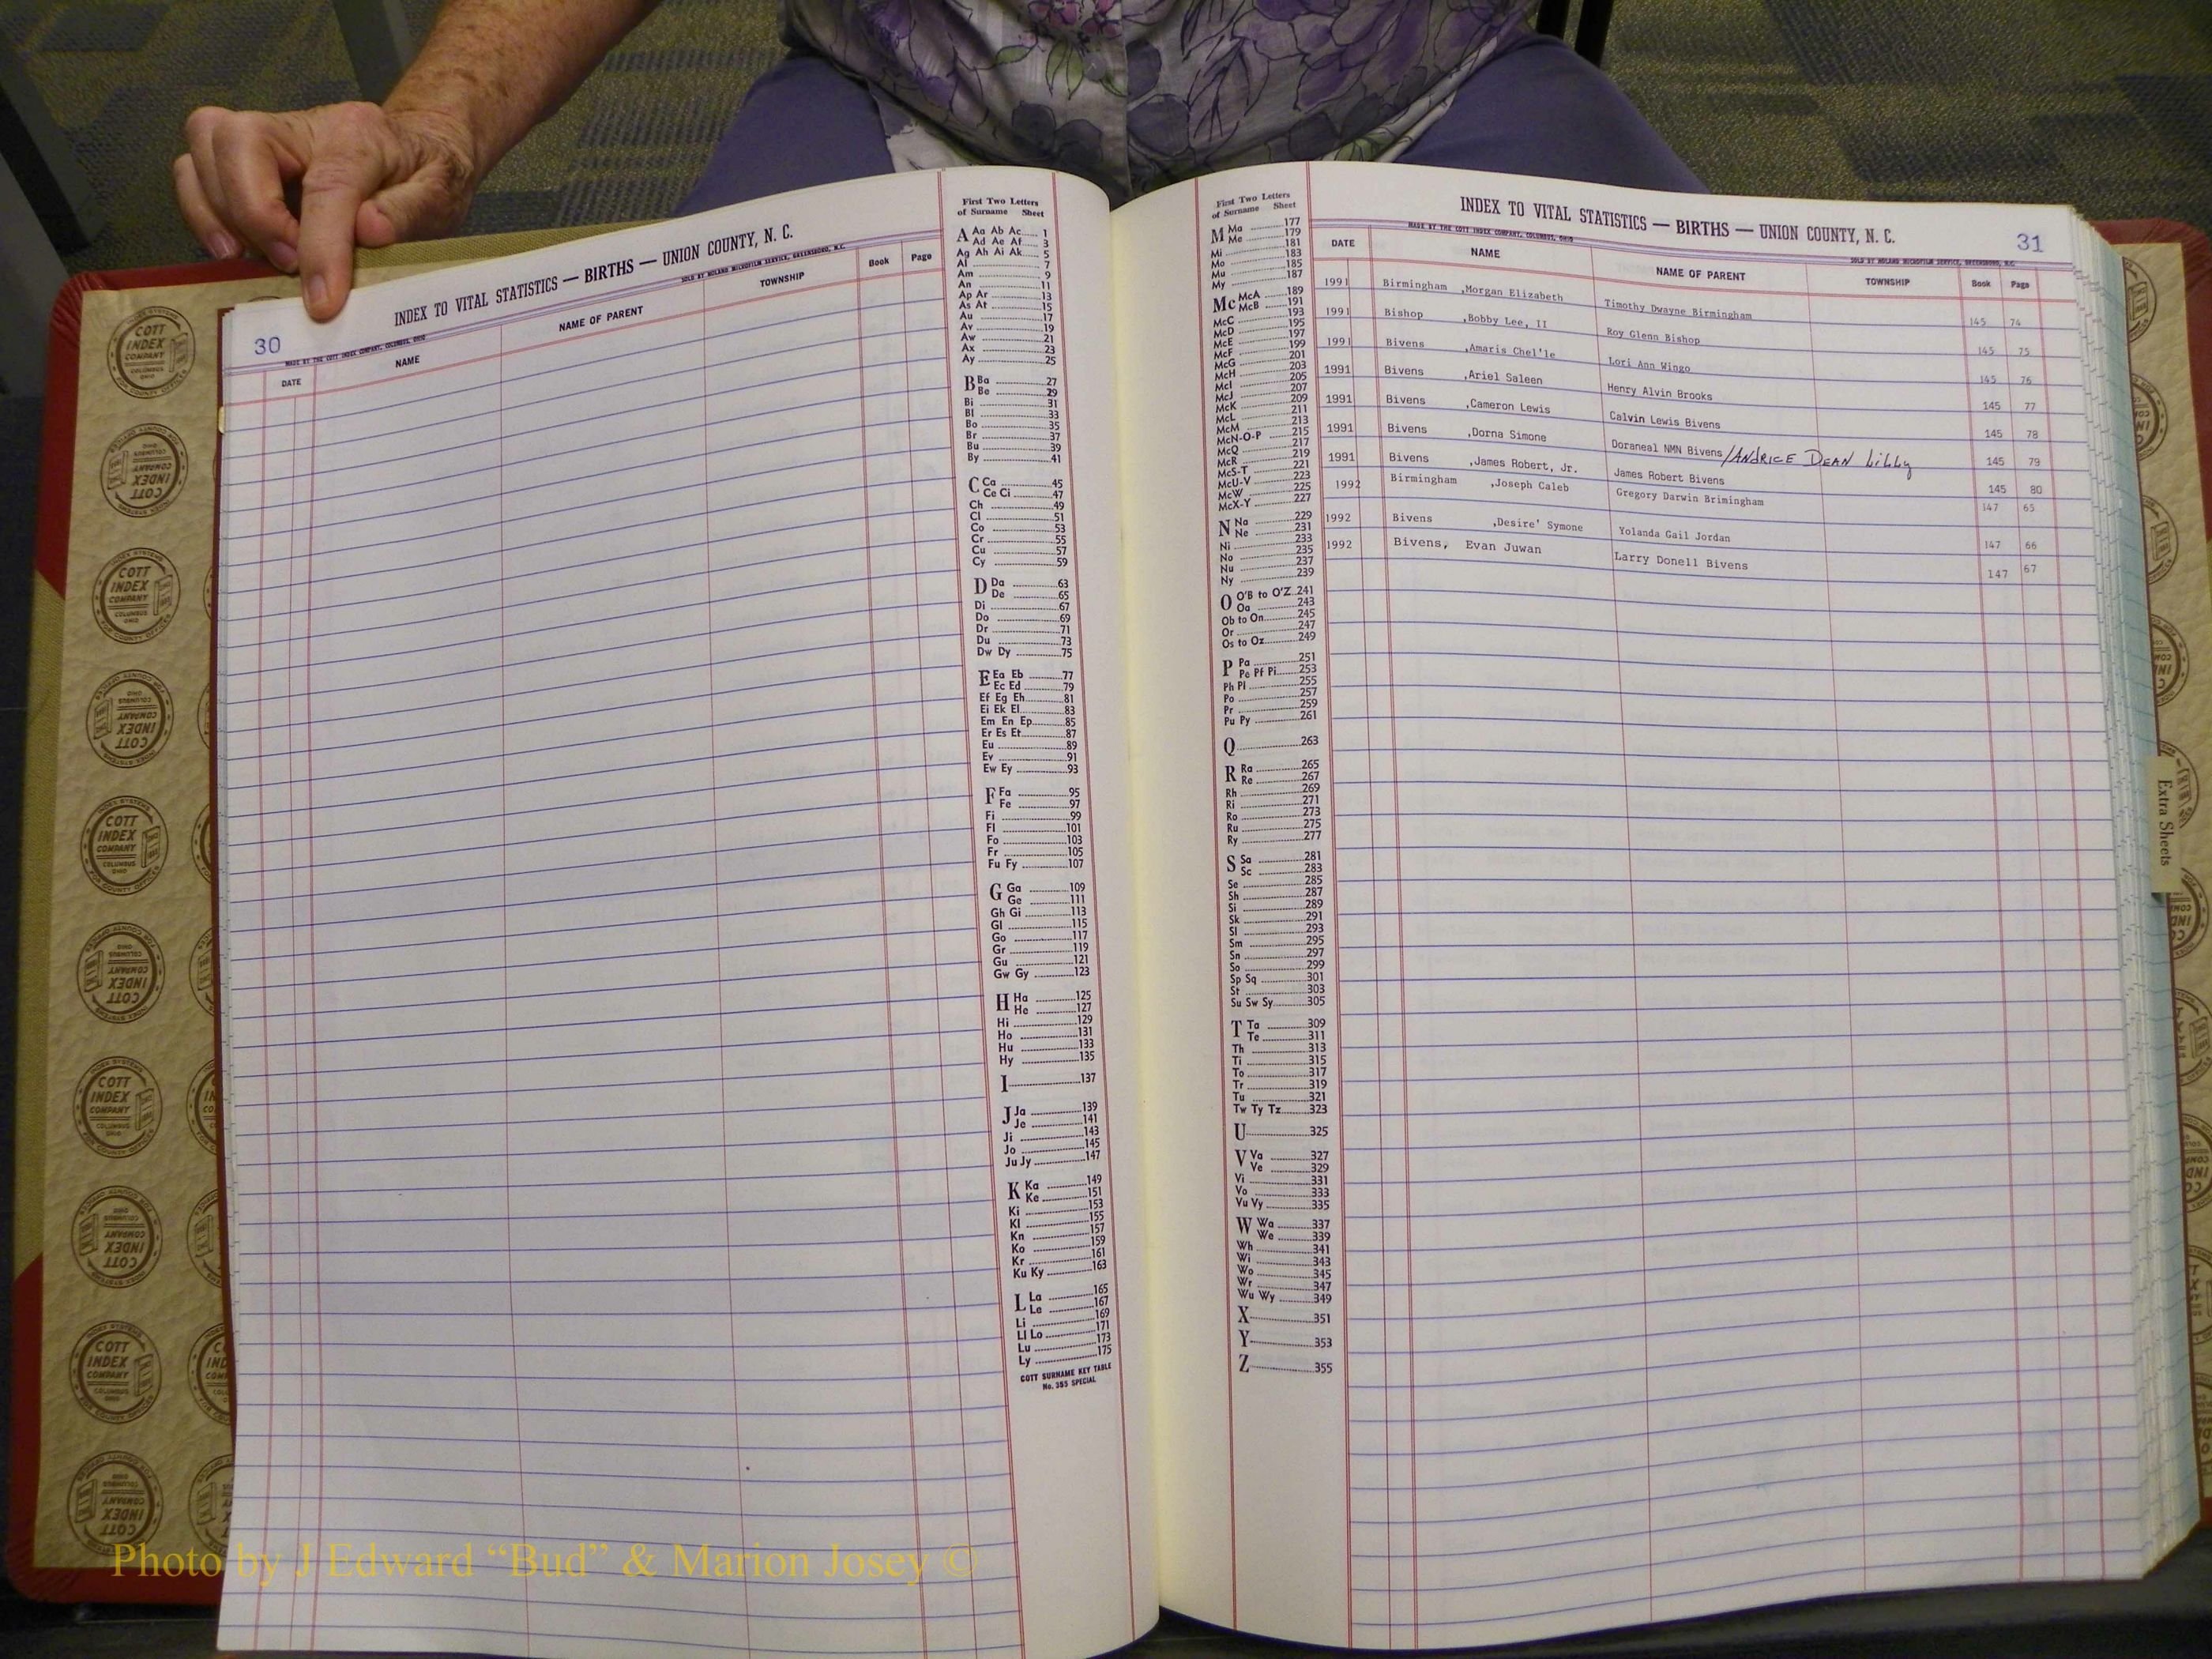 30
INDEX TO VITAL STATISTICS — BIRTHS — UNION COUNTY, N. C.
MADE BY THE COTT INDEX COMPANY, COLUMBUS, OHIO
SOLD BY NOLAND MICROFILM SERVICE, GREENSBORO, N.C.
DATE NAME NAME OF PARENT TOWNSHIP Book Page
First Two Letters
of Surname Sheet
A Aa Ab Ac 1
Ad Ae Af 3
Ag Ah Ai Ak 5
Al 7
Am 9
An 11
Ap Ar 13
As At 15
Au 17
Av 19
Aw 21
Ax 23
Ay 25
B Ba 27
Be 29
Bi 31
Bl 33
Bo 35
Br 37
Bu 39
By 41
C Ca 45
Ce Ci 47
Ch 49
Cl 51
Co 53
Cr 55
Cu 57
Cy 59
D Da 63
De 65
Di 67
Do 69
Dr 71
Du 73
Dw Dy 75
E Ea Eb 77
Ec Ed 79
Ef Eg Eh 81
Ei Ek El 83
Em En Ep 85
Er Es Et 87
Eu 89
Ev 91
Ew Ey 93
F Fa 95
Fe 97
Fi 99
Fl 101
Fo 103
Fr 105
Fu Fy 107
G Ga 109
Ge 111
Gh Gi 113
Gl 115
Go 117
Gr 119
Gu 121
Gw Gy 123
H Ha 125
He 127
Hi 129
Ho 131
Hu 133
Hy 135
I 137
J Ja 139
Je 141
Ji 143
Jo 145
Ju Jy 147
K Ka 149
Ke 151
Ki 153
Kl 155
Kn 157
Ko 159
Kr 161
Ku Ky 163
L La 165
Le 167
Li 169
Ll Lo 171
Lu 173
Ly 175
COTT SURNAME KEY TABLE
No. 355 SPECIAL
First Two Letters
of Surname Sheet
M Ma 177
Me 179
Mi 181
Mo 183
Mu 185
My 187
Mc McA 189
McB 191
McC 193
McD 195
McE 197
McF 199
McG 201
McH 203
McI 205
McJ 207
McK 209
McL 211
McM 213
McN-O-P 215
McQ 217
McR 219
McS-T 221
McU-V 223
McW 225
McX-Y 227
N Na 229
Ne 231
Ni 233
No 235
Nu 237
Ny 239
O O'B to O'Z 241
Oa 243
Ob to On 245
Or 247
Os to Oz 249
P Pa 251
Pe Pf Pi 253
Ph Pl 255
Po 257
Pr 259
Pu Py 261
Q 263
R Ra 265
Re 267
Rh 269
Ri 271
Ro 273
Ru 275
Ry 277
S Sa 281
Sc 283
Se 285
Sh 287
Si 289
Sk 291
Sl 293
Sm 295
Sn 297
So 299
Sp Sq 301
St 303
Su Sw Sy 305
T Ta 309
Te 311
Th 313
Ti 315
To 317
Tr 319
Tu 321
Tw Ty Tz 323
U 325
V Va 327
Ve 329
Vi 331
Vo 333
Vu Vy 335
W Wa 337
We 339
Wh 341
Wi 343
Wo 345
Wr 347
Wu Wy 349
X 351
Y 353
Z 355
INDEX TO VITAL STATISTICS — BIRTHS — UNION COUNTY, N. C.
31
MADE BY THE COTT INDEX COMPANY, COLUMBUS, OHIO
SOLD BY NOLAND MICROFILM SERVICE, GREENSBORO, N.C.
DATE NAME NAME OF PARENT TOWNSHIP Book Page
1991 Birmingham ,Morgan Elizabeth Timothy Dwayne Birmingham 145 74
1991 Bishop ,Bobby Lee, II Roy Glenn Bishop 145 75
1991 Bivens ,Amaris Chel'le Lori Ann Wingo 145 76
1991 Bivens ,Ariel Saleen Henry Alvin Brooks 145 77
1991 Bivens ,Cameron Lewis Calvin Lewis Bivens 145 78
1991 Bivens ,Dorna Simone Doraneal NMN Bivens/ANDRICE DEAN Lilly 145 79
1991 Bivens ,James Robert, Jr. James Robert Bivens 145 80
1992 Birmingham ,Joseph Caleb Gregory Darwin Brimingham 147 65
1992 Bivens ,Desire' Symone Yolanda Gail Jordan 147 66
1992 Bivens, Evan Juwan Larry Donell Bivens 147 67
Extra Sheets
COTT INDEX COMPANY
COLUMBUS OHIO
INDEX SYSTEMS
FOR COUNTY OFFICES
Photo by J Edward “Bud” & Marion Josey ©